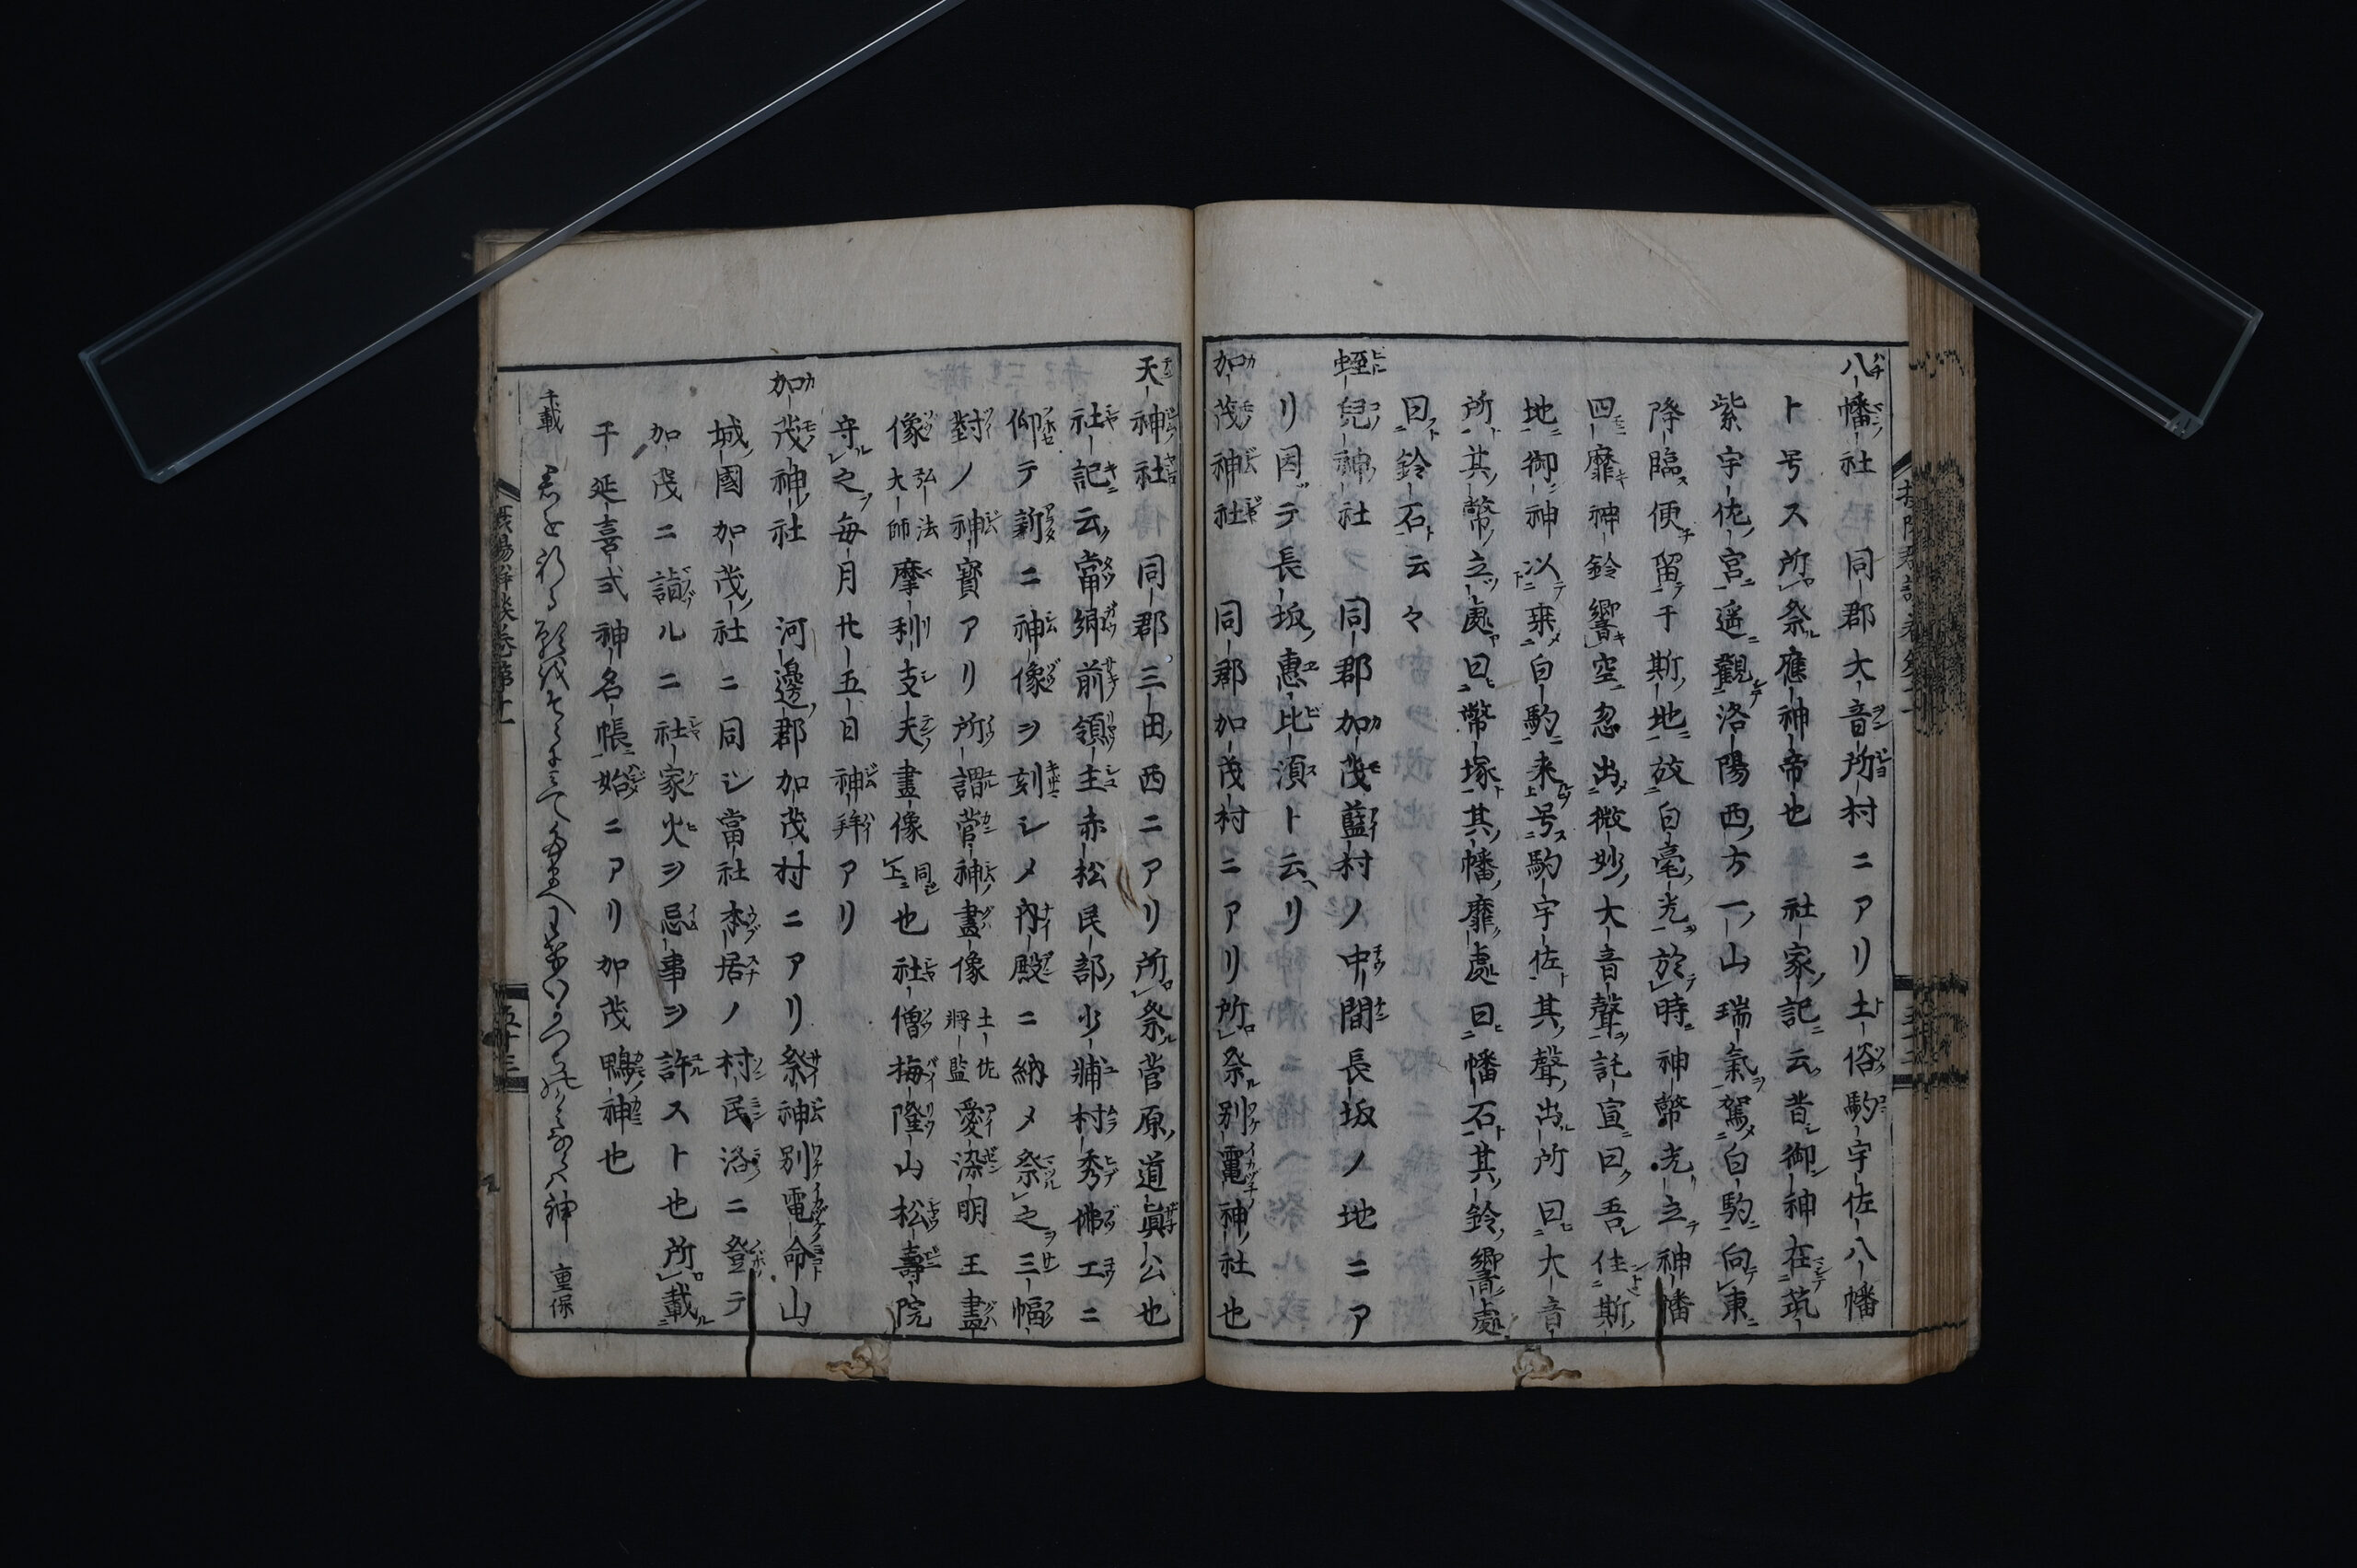 八幡社 同郡大音所村ニアリ土俗駒宇佐八幡
ト号ス所祭應神帝也 社家記云昔御神在筑
紫宇佐宮遥觀洛陽西方一山瑞氣駕白駒向東
降臨便留于斯地放白毫光於時神幣光立神幡
四靡神鈴響空忽出微妙大音聲託宣曰吾住斯
地御神以乗白駒来号駒宇佐其聲出所曰大音
所其幣立處曰幣塚其幡靡處曰幡石其鈴響處
曰鈴石云々
蛭兒神社 同郡加茂藍村ノ中間長坂ノ地ニア
リ因テ長坂惠比須ト云リ
加茂神社 同郡加茂村ニアリ所祭別電神社也
天神社 同郡三田西ニアリ所祭菅原道眞公也
社記云當縣前領主赤松民部少輔村秀佛工ニ
仰テ新ニ神像ヲ刻シメ内殿ニ納メ祭之三幅
對ノ神寳アリ所謂菅神畫像土佐將監愛染明王畫
像弘法大師摩利支天畫像同上也社僧梅隆山松壽院
守之毎月廿五日神拜アリ
加茂神社 河邊郡加茂村ニアリ祭神別電命山
城國加茂社ニ同シ當社本居ノ村民洛ニ登テ
加茂ニ詣ルニ社家火ヲ忌事ヲ許ストも也所載
于延喜式神名帳始ニアリ加茂鴨神也
千載 君を祈る願を 神 重保
五十三